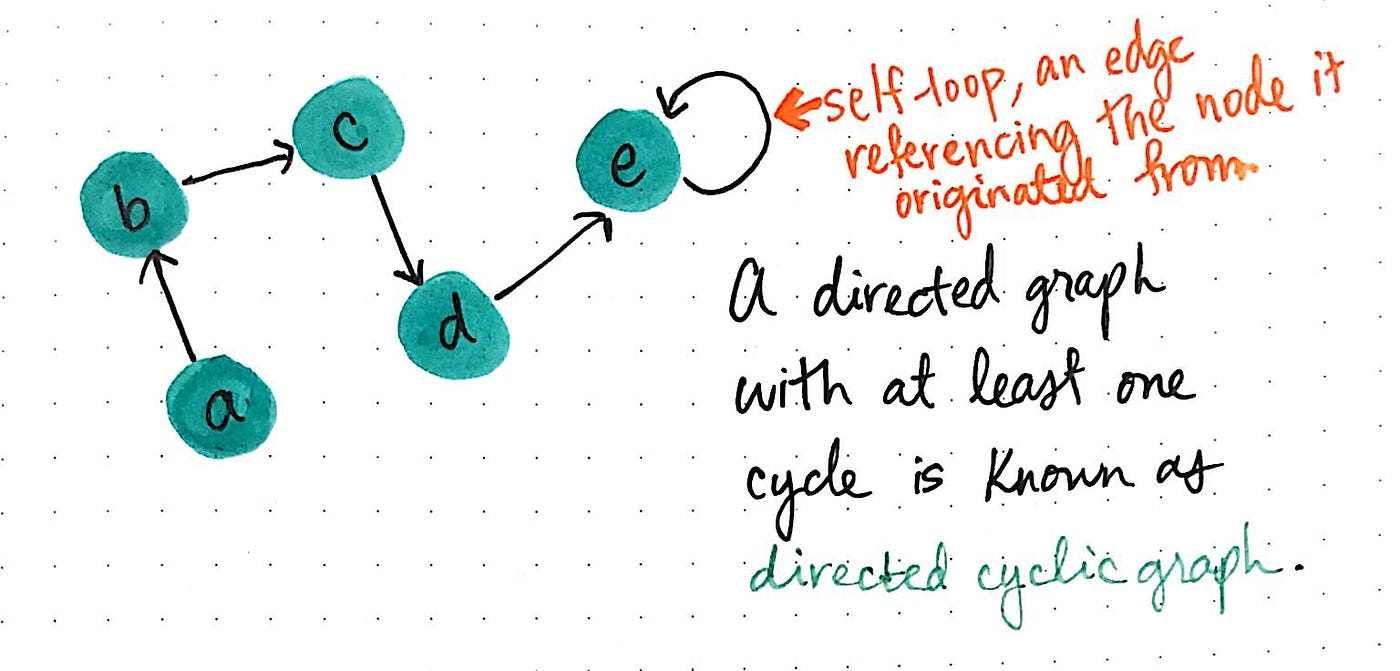 c
e
b
d
a
self-loop, an edge
referencing the node it
originated from
A directed graph
with at least one
cycle is known as
directed cyclic graph.